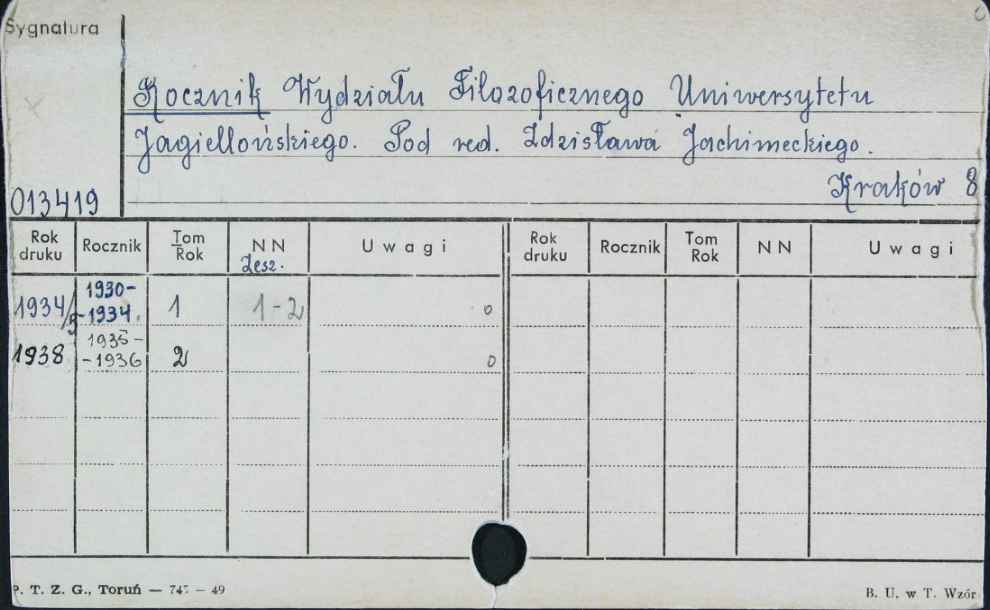 Sygnatura
Rocznik Wydziału Filozoficznego Uniwersytetu
Jagiellońskiego. Pod red. Zdzisława Jachimeckiego.
Kraków 8
013419
Rok druku Rocznik Tom Rok NN Zesz. Uwagi Rok druku Rocznik Tom Rok NN Uwagi
1934/5 1930-1934. 1 1-2 0
1938 1935-1936 2 0
P. T. Z. G., Toruń — 747 — 49 B. U. w T. Wzór